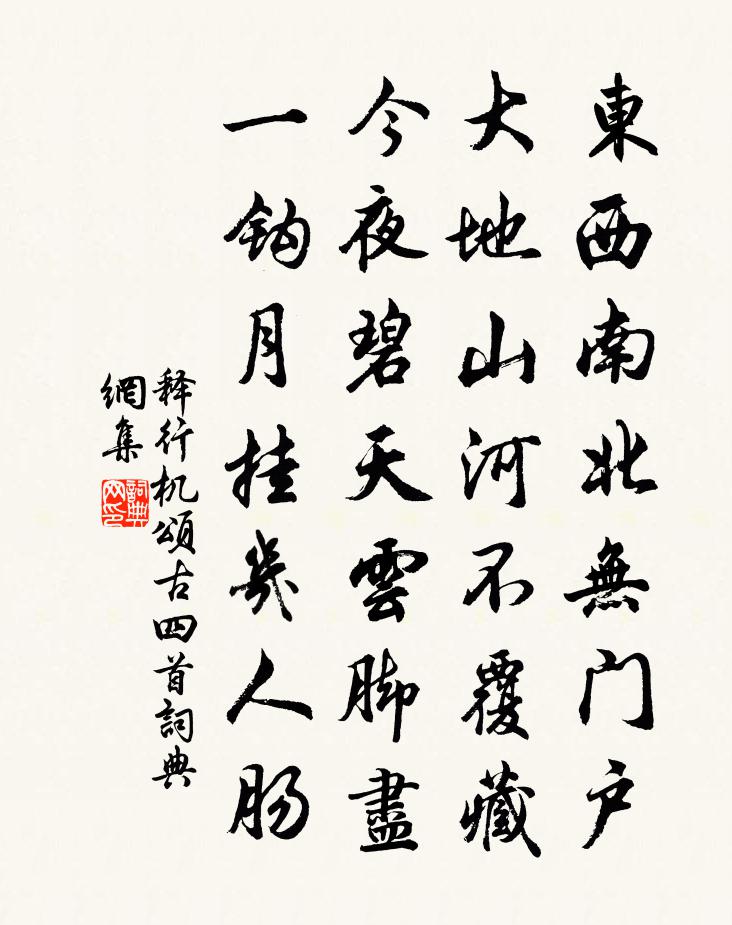 東西南北無门户
大地山河不覆藏
今夜碧天雲脚盡
一鈎月挂幾人肠
释行机頌古四首詞典
網集
詞典
网印